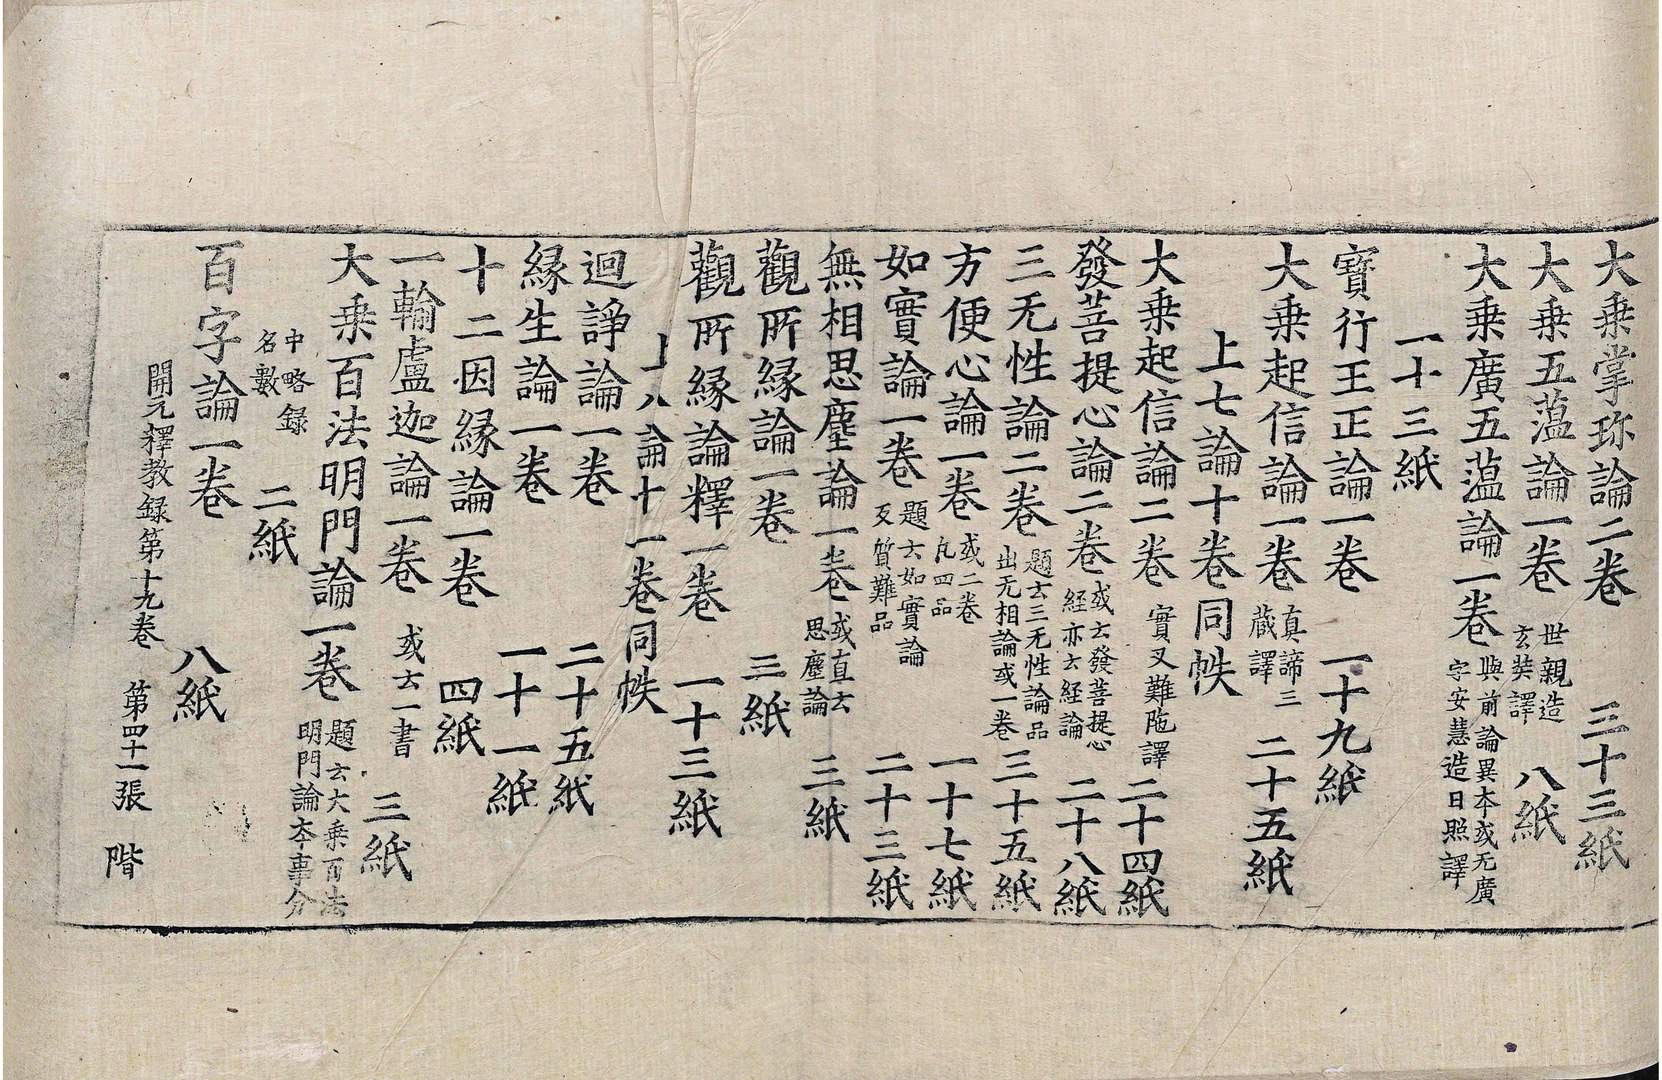 大乗掌珎論二卷 三十三紙
大乗五蕰論一卷 世親造玄奘譯 八紙
大乗廣五蕰論一卷 與前論異本或无廣字安慧造日照譯
一十三紙
寶行王正論一卷 一十九紙
大乗起信論一卷 真諦三蔵譯 二十五紙
上七論十卷同帙
大乗起信論二卷 實叉難陁譯 二十四紙
發菩提心論二卷 或云發菩提心経亦云経論 二十八紙
三无性論二卷 題云三无性論品出无相論或一卷 三十五紙
方便心論一卷 或二卷凡四品 一十七紙
如實論一卷 題云如實論反質難品 二十三紙
無相思塵論一卷 或直云思塵論 三紙
觀所縁論一卷 三紙
觀所縁論釋一卷 一十三紙
上八論十一卷同帙
迴諍論一卷 二十五紙
縁生論一卷 一十一紙
十二因縁論一卷 四紙
一輸盧迦論一卷 或云一書 三紙
大乗百法明門論一卷 題云大乗百法明門論本事分
中略録名數 二紙
百字論一卷 八紙
開元釋教録第十九卷 第四十一張 階